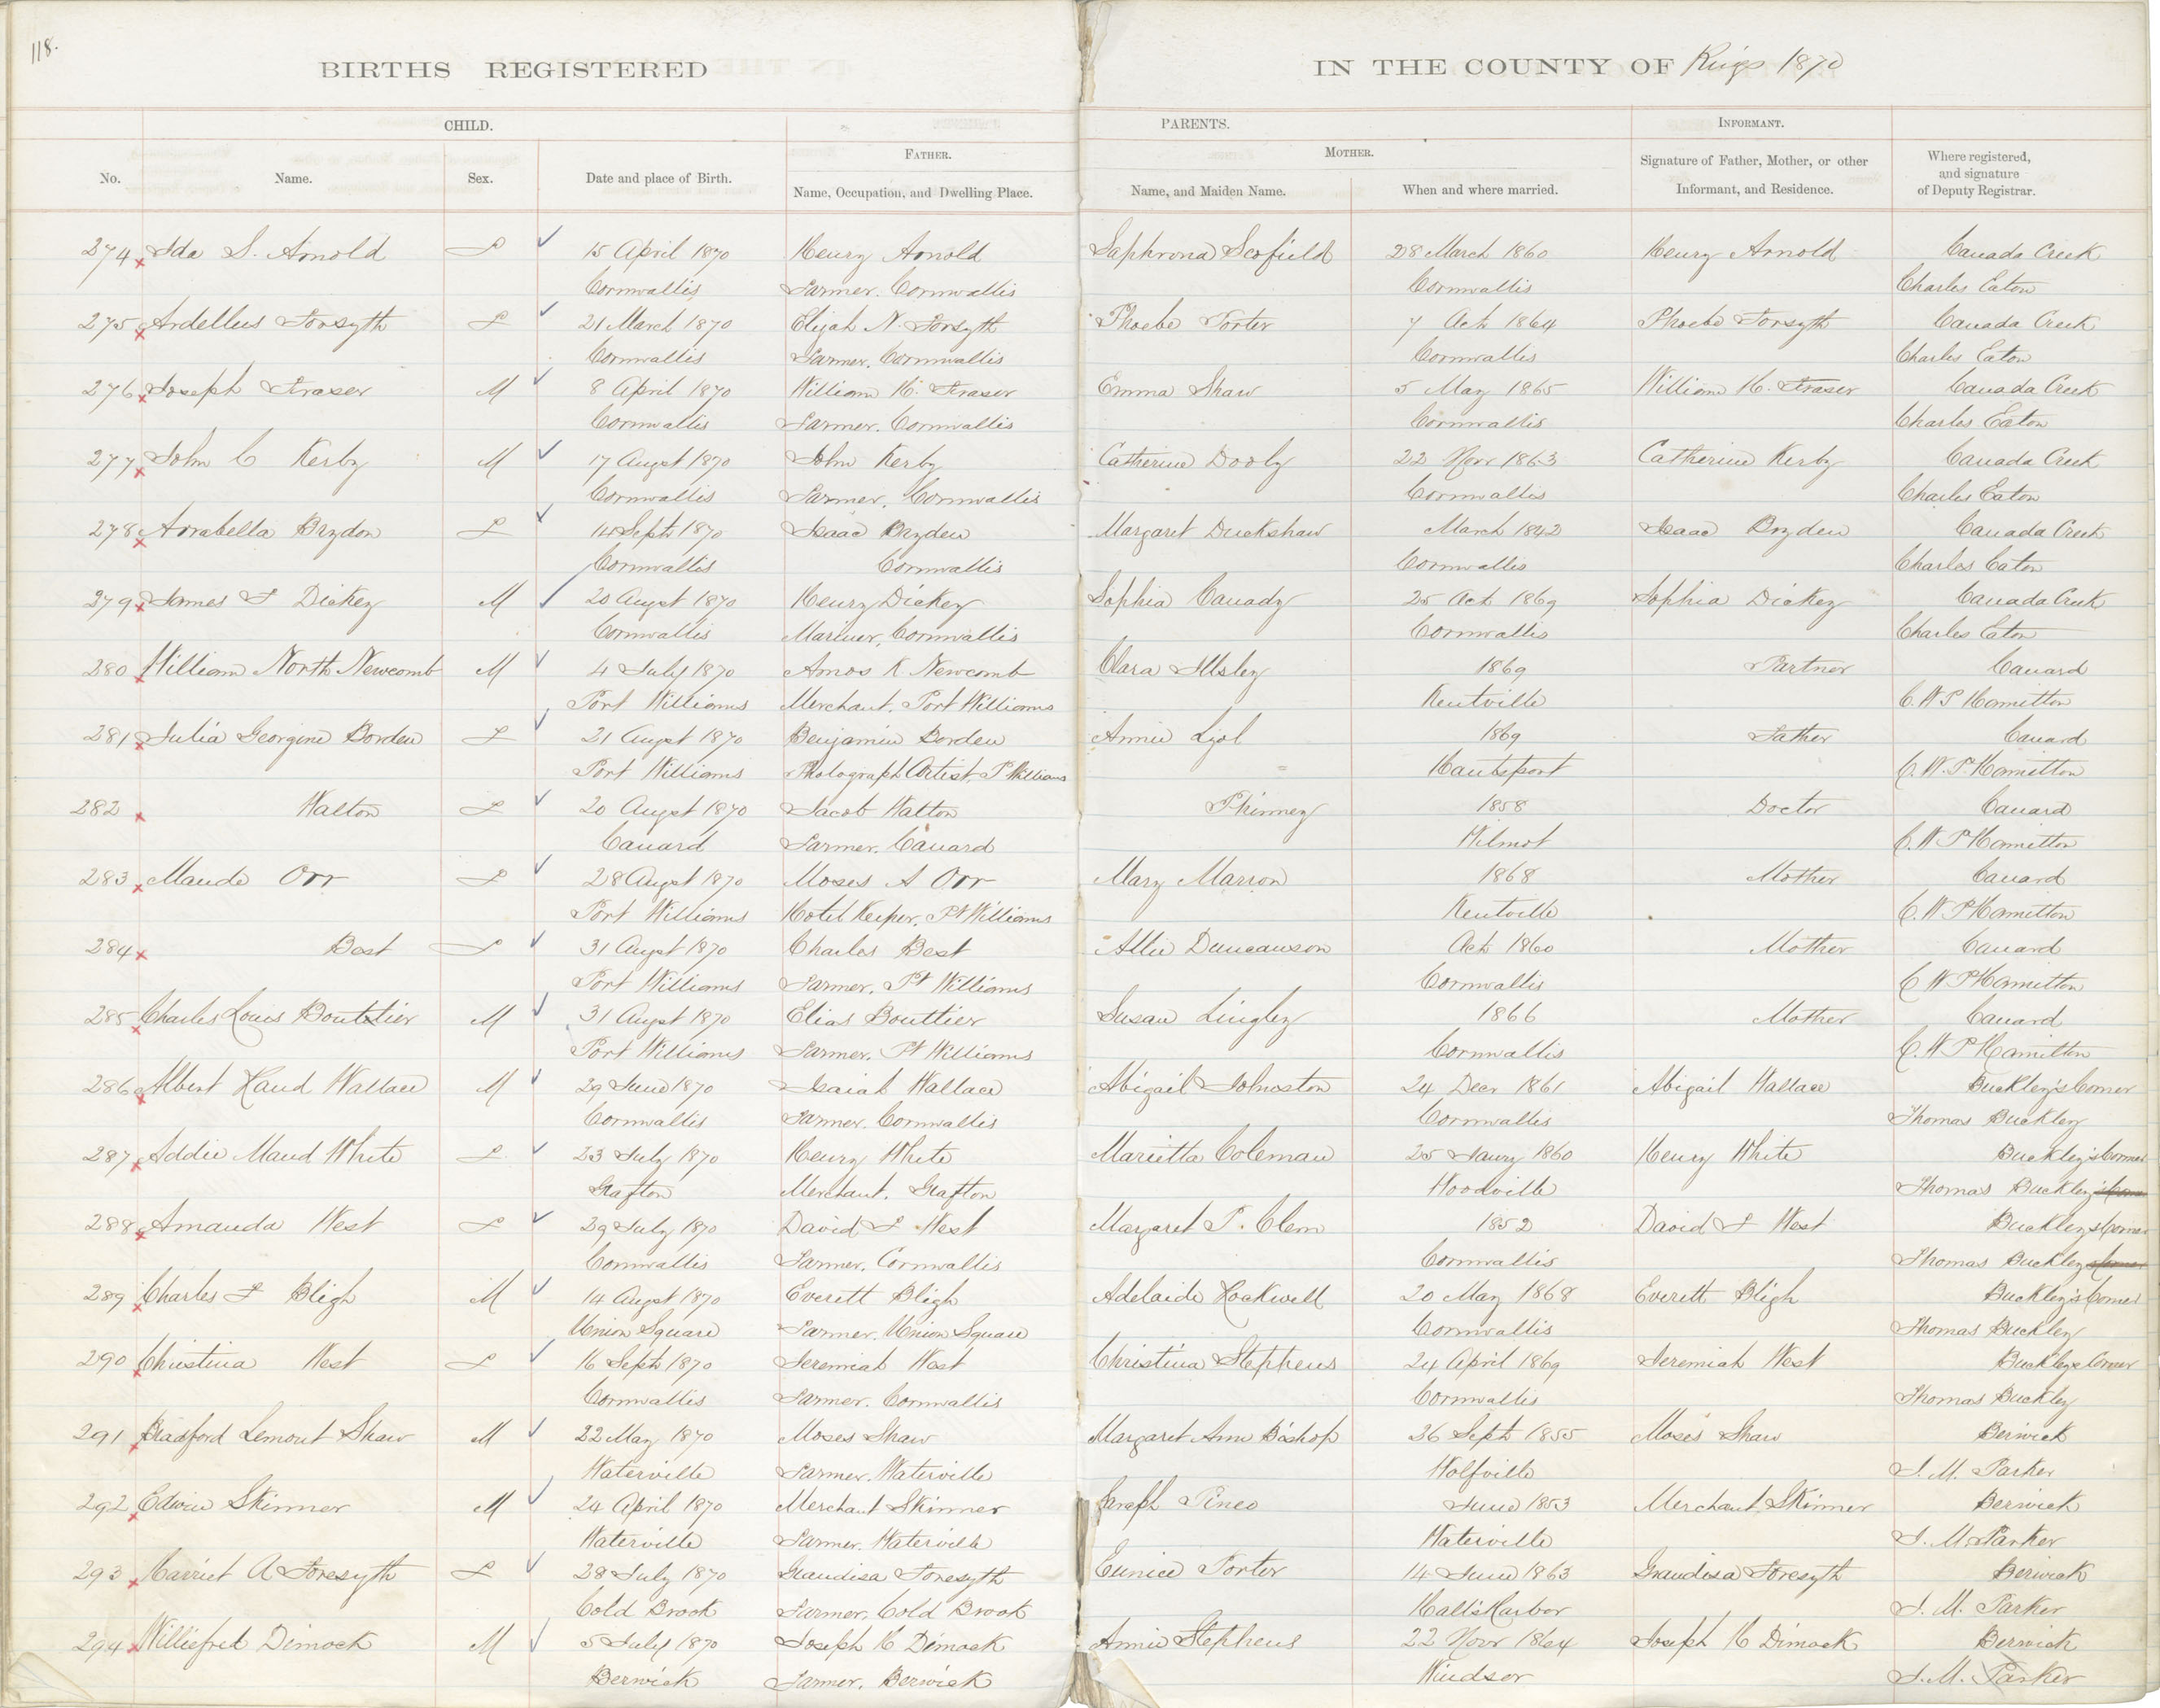 118.
BIRTHS REGISTERED IN THE COUNTY OF Kings 1870
CHILD. PARENTS. INFORMANT.
FATHER. MOTHER.
No. Name. Sex. Date and place of Birth. Name, Occupation, and Dwelling Place. Name, and Maiden Name. When and where married. Signature of Father, Mother, or other Informant, and Residence. Where registered, and signature of Deputy Registrar.
274 Ida S. Arnold F 15 April 1870 Henry Arnold Saphrona Scofield 28 March 1860 Henry Arnold Canada Creek
Cornwallis Farmer. Cornwallis Cornwallis Charles Eaton
275 Ardellus Forsyth F 21 March 1870 Elijah N. Forsyth Phoebe Porter 7 Oct 1864 Phoebe Forsyth Canada Creek
Cornwallis Farmer. Cornwallis Cornwallis Charles Eaton
276 Joseph Fraser M 8 April 1870 William H. Fraser Emma Shaw 5 May 1865 William H. Fraser Canada Creek
Cornwallis Farmer. Cornwallis Cornwallis Charles Eaton
277 John C Kerby M 17 Augst 1870 John Kerby Catherine Dooly 22 Novr 1863 Catherine Kerby Canada Creek
Cornwallis Farmer. Cornwallis Cornwallis Charles Eaton
278 Arrabella Bryden F 14 Sept 1870 Isaac Bryden Margaret Duckshaw March 1842 Isaac Bryden Canada Creek
Cornwallis Cornwallis Cornwallis Charles Eaton
279 James F Dickey M 20 Augst 1870 Henry Dickey Sophia Canady 25 Oct 1869 Sophia Dickey Canada Creek
Cornwallis Mariner, Cornwallis Cornwallis Charles Eaton
280 William North Newcomb M 4 July 1870 Amos K. Newcomb Clara Illsley 1869 Partner Canard
Port Williams Merchant. Port Williams Kentville C. W P Hamilton
281 Julia Georgine Borden F 21 Augst 1870 Benjamin Borden Annie Lyol 1869 Father Canard
Port Williams Photograph Artist, P Williams Hantsport C. W. P. Hamilton
282 Walton F 20 Augst 1870 Jacob Walton Phinney 1858 Doctor Canard
Canard Farmer. Canard Wilmot C. W P Hamilton
283 Maude Orr F 28 Augst 1870 Moses A Orr Mary Marron 1868 Mother Canard
Port Williams Hotel Keeper, Pt Williams Kentville C. W P Hamilton
284 Best F 31 Augst 1870 Charles Best Allie Duncanson Oct 1860 Mother Canard
Port Williams Farmer, Pt Williams Cornwallis C W P Hamilton
285 Charles Louis Bouttier M 31 Augst 1870 Elias Bouttier Susan Lingley 1866 Mother Canard
Port Williams Farmer, Pt Williams Cornwallis. C. W P Hamilton
286 Albert Hand Wallace M 29 June 1870 Isaiah Wallace Abigail Johnston 24 Decr 1861 Abigail Wallace Buckley's Corner
Cornwallis Farmer, Cornwallis Cornwallis Thomas Buckley
287 Addie Maud White F 23 July 1870 Henry White Marietta Coleman 25 Janry 1860 Henry White Buckley's Corner
Grafton Merchant. Grafton Woodville Thomas Buckley
288 Amanda West F 29 July 1870 David F West Margaret P. Clem 1852 David F West Buckleys Corner
Cornwallis Farmer, Cornwallis Cornwallis Thomas Buckley
289 Charles F Bligh M 14 Augst 1870 Everett Bligh Adelaide Rockwell 20 May 1868 Everett Bligh Buckley's Corner
Union Square Farmer. Union Square Cornwallis Thomas Buckley
290 Christina West F 16 Sept 1870 Jeremiah West Christina Stephens 24 April 1869 Jeremiah West Buckleys Corner
Cornwallis Farmer. Cornwallis Cornwallis Thomas Buckley
291 Bradford Lemont Shaw M 22 May 1870 Moses Shaw Margaret Ann Bishop 26 Sept 1855 Moses Shaw Berwick
Waterville Farmer. Waterville Wolfville S. M. Parker
292 Edwin Skinner M 24 April 1870 Merchant Skinner Seraph Pineo June 1853 Merchant Skinner Berwick
Waterville Farmer, Waterville Waterville S. M. Parker
293 Harriet A Foresyth F 28 July 1870 Grandisa Foresyth Eunice Porter 14 June 1863 Grandisa Foresyth Berwick
Cold Brook Farmer, Cold Brook Hall's Harbor S. M. Parker
294 Williefred Dimock M 5 July 1870 Joseph H Dimock Annie Stephens 22 Novr 1864 Joseph H Dimock Berwick
Berwick Farmer, Berwick Windsor S. M. Parker